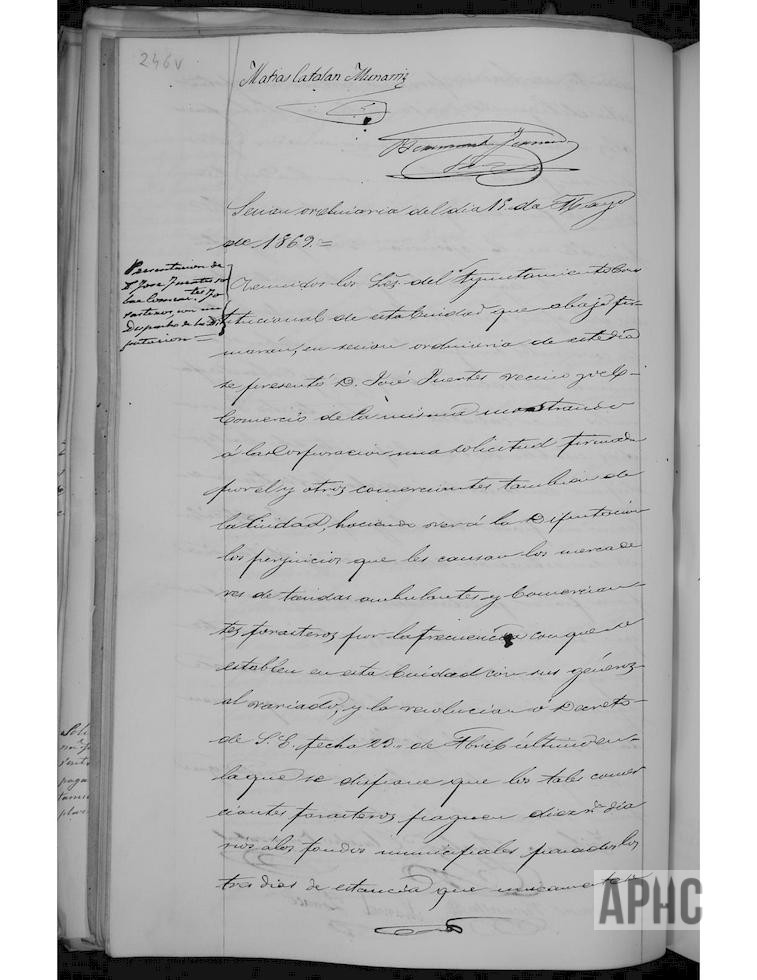 246v
Matias Catalan Munarriz
Sesion ordinaria del dia 15 de Mayo
de 1869.=
Presentacion de
D. Jose Fuentes so
bre Comerciantes fo
rasteros, con un
Despacho de la Di
putacion =
Reunidos los Sres. del Ayuntamiento Cons
titucional de esta Ciudad que abajo fir
marán, en sesion ordinaria de este dia
se presentó D. José Fuentes vecino y del
Comercio de la misma mostrando
á la Corporacion una solicitud firmada
por el y otros comerciantes tambien de
la Ciudad, haciendo ver á la Diputación
los perjuicios que les causan los mercade
res de tiendas ambulantes y Comercian-
tes forasteros por la frecuencia con que se
establen en esta Ciudad con sus géneros
al variado, y la resolucion ó Decreto
de S. E. fecha 23 de Abril último en
la que se dispone que los tales comer
ciantes forasteros paguen diez rs. dia
rios á los fondos municipales pasados los
tres dias de estancia que unicamente
APHC